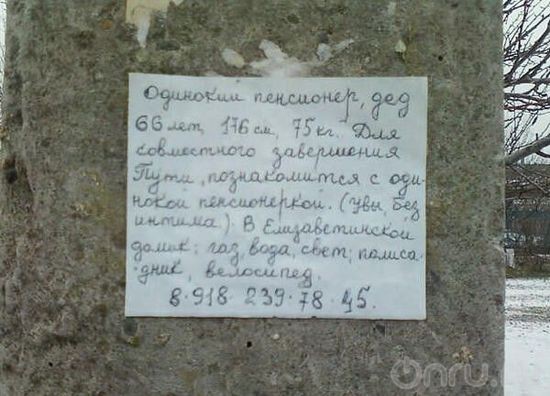 Одинокий пенсионер, дед
66 лет, 176 см, 75 кг. Для
совместного завершения
Пути, познакомится с оди-
нокой пенсионеркой. (Увы, без
интима). В Елизаветинской
домик: газ, вода, свет; палиса-
дник, велосипед.
8·918·239·78·45.
Onru.ru